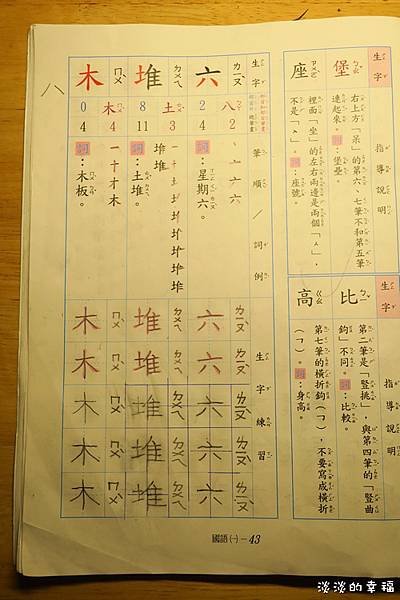 生字
堡
座
指導說明
右上方「呆」的第六、七筆不和第五筆連起來。詞：堡壘。
裡面「坐」的左右兩邊是兩個「人」，不是「ㄙ」。詞：座號。
比
高
指導說明
第二筆是「豎挑」，與第四筆的「豎曲鉤」不同。詞：比較。
第七筆的橫折鉤(㇆)，不要寫成橫折(㇕)。詞：身高。
生字
六 ㄌㄧㄡˋ
堆 ㄉㄨㄟ
木 ㄇㄨˋ
八
八 2
2 4
土 3
8 11
木 4
0 4
筆順／詞例
六
詞：星期六。
一十土
堆堆
詞：土堆。
一十才木
詞：木板。
生字練習
六 ㄌㄧㄡˋ
六 ㄌㄧㄡˋ
六 ㄌㄧㄡˋ
六 ㄌㄧㄡˋ
六 ㄌㄧㄡˋ
堆 ㄉㄨㄟ
堆 ㄉㄨㄟ
堆 ㄉㄨㄟ
堆 ㄉㄨㄟ
堆 ㄉㄨㄟ
木 ㄇㄨˋ
木 ㄇㄨˋ
木 ㄇㄨˋ
木 ㄇㄨˋ
木 ㄇㄨˋ
國語(一)－43
淡淡的幸福